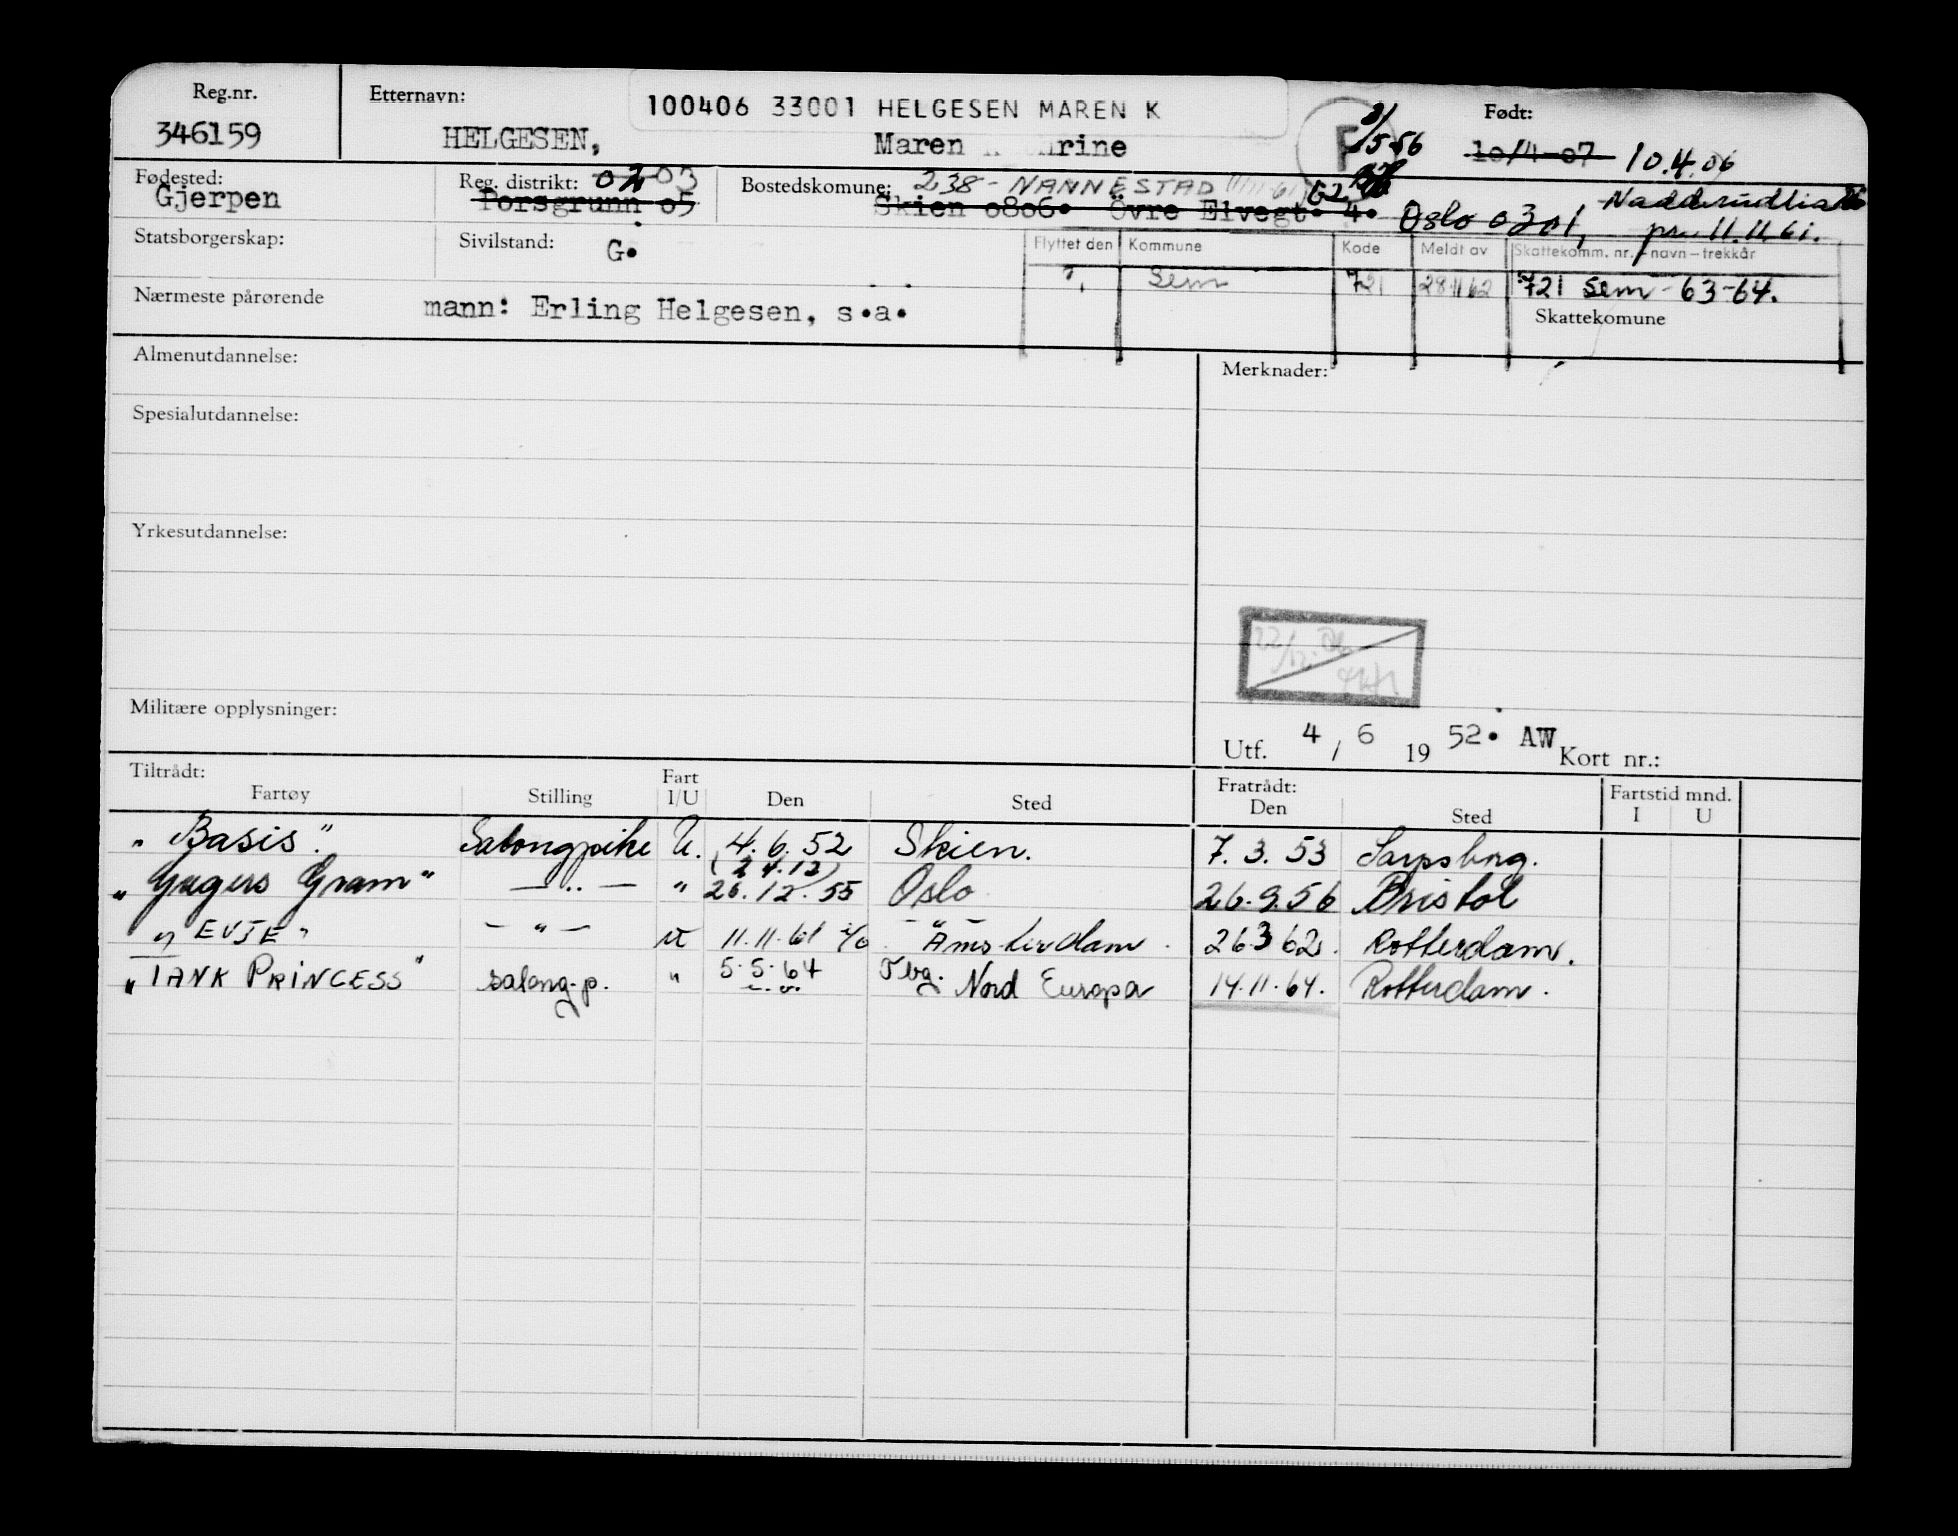 Reg.nr. Etternavn: 100406 33001 HELGESEN MAREN K Født:
346159 HELGESEN, Maren rine F 5-56 10/4-07 10.4.06
Fødested: Reg. distrikt: 03 Bostedskomune: 238 - NANNESTAD
Gjerpen Porsgrunn 05 Skien 0806. Övre Elvegt. 4. Oslo 0301, 11.11.61.
Statsborgerskap: Sivilstand: G. Flyttet den Kommune Kode Meldt av Skattekomm. nr. - navn - trekkår
Sem 721 28/11 62 721 Sem - 63-64.
Nærmeste pårørende mann: Erling Helgesen, s.a. Skattekomune
Almenutdannelse: Merknader:
Spesialutdannelse:
Yrkesutdannelse:
Militære opplysninger:
Utf. 4 / 6 19 52. AW Kort nr.:
Tiltrådt: Fratrådt: Fartstid mnd.
Fartøy Stilling Fart I/U Den Sted Den Sted I U
"Basis". Salongpike U. 4.6.52 Skien. 7.3.53 Sarpsborg.
(24.12)
"Gregers Gram" — " — " 26.12.55 Oslo 26.9.56 Bristol
"EVJE" — " — U 11.11.61 Amsterdam. 26 3 62. Rotterdam.
"TANK PRINCESS" salong.p. " 5.5.64 Tbg. Nord Europa 14.11.64. Rotterdam.